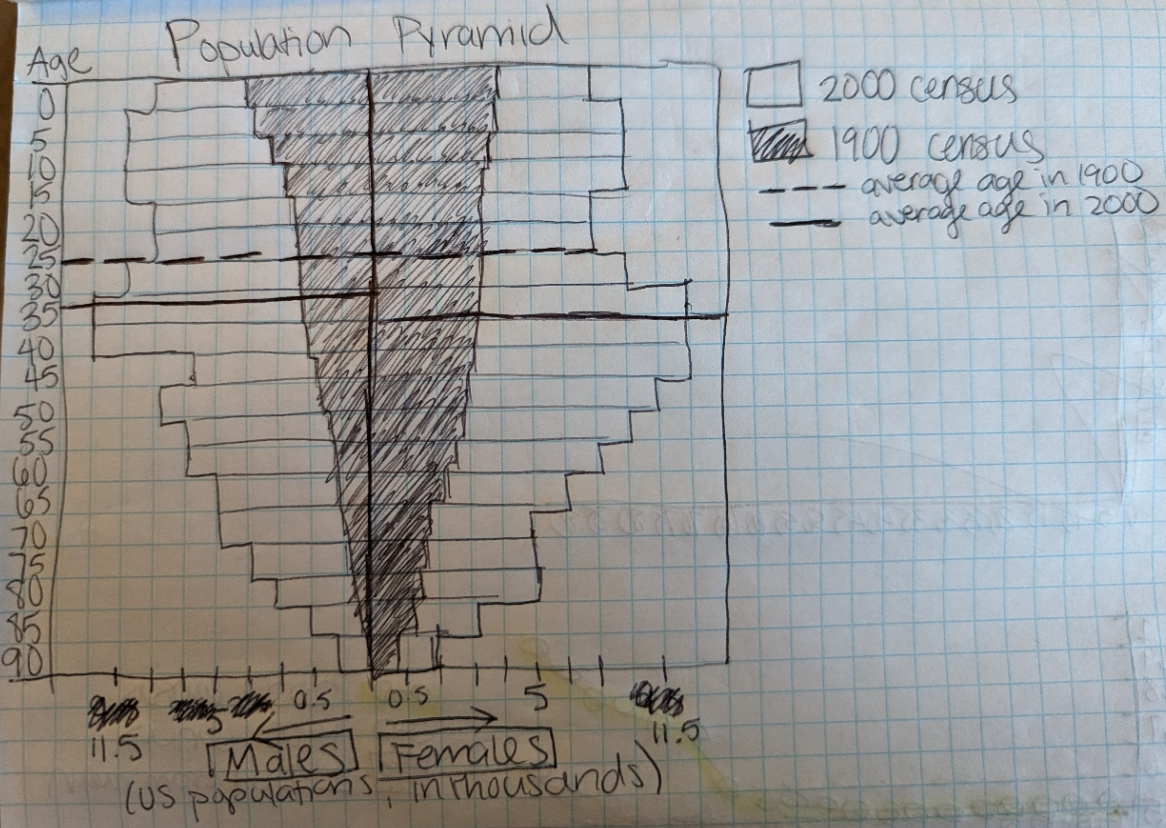 Population Pyramid
Age
0
5
10
15
20
25
30
35
40
45
50
55
60
65
70
75
80
85
90
2000 census
1900 census
average age in 1900
average age in 2000
5 0.5 0.5 5
11.5 11.5
Males Females
(US populations, in thousands)